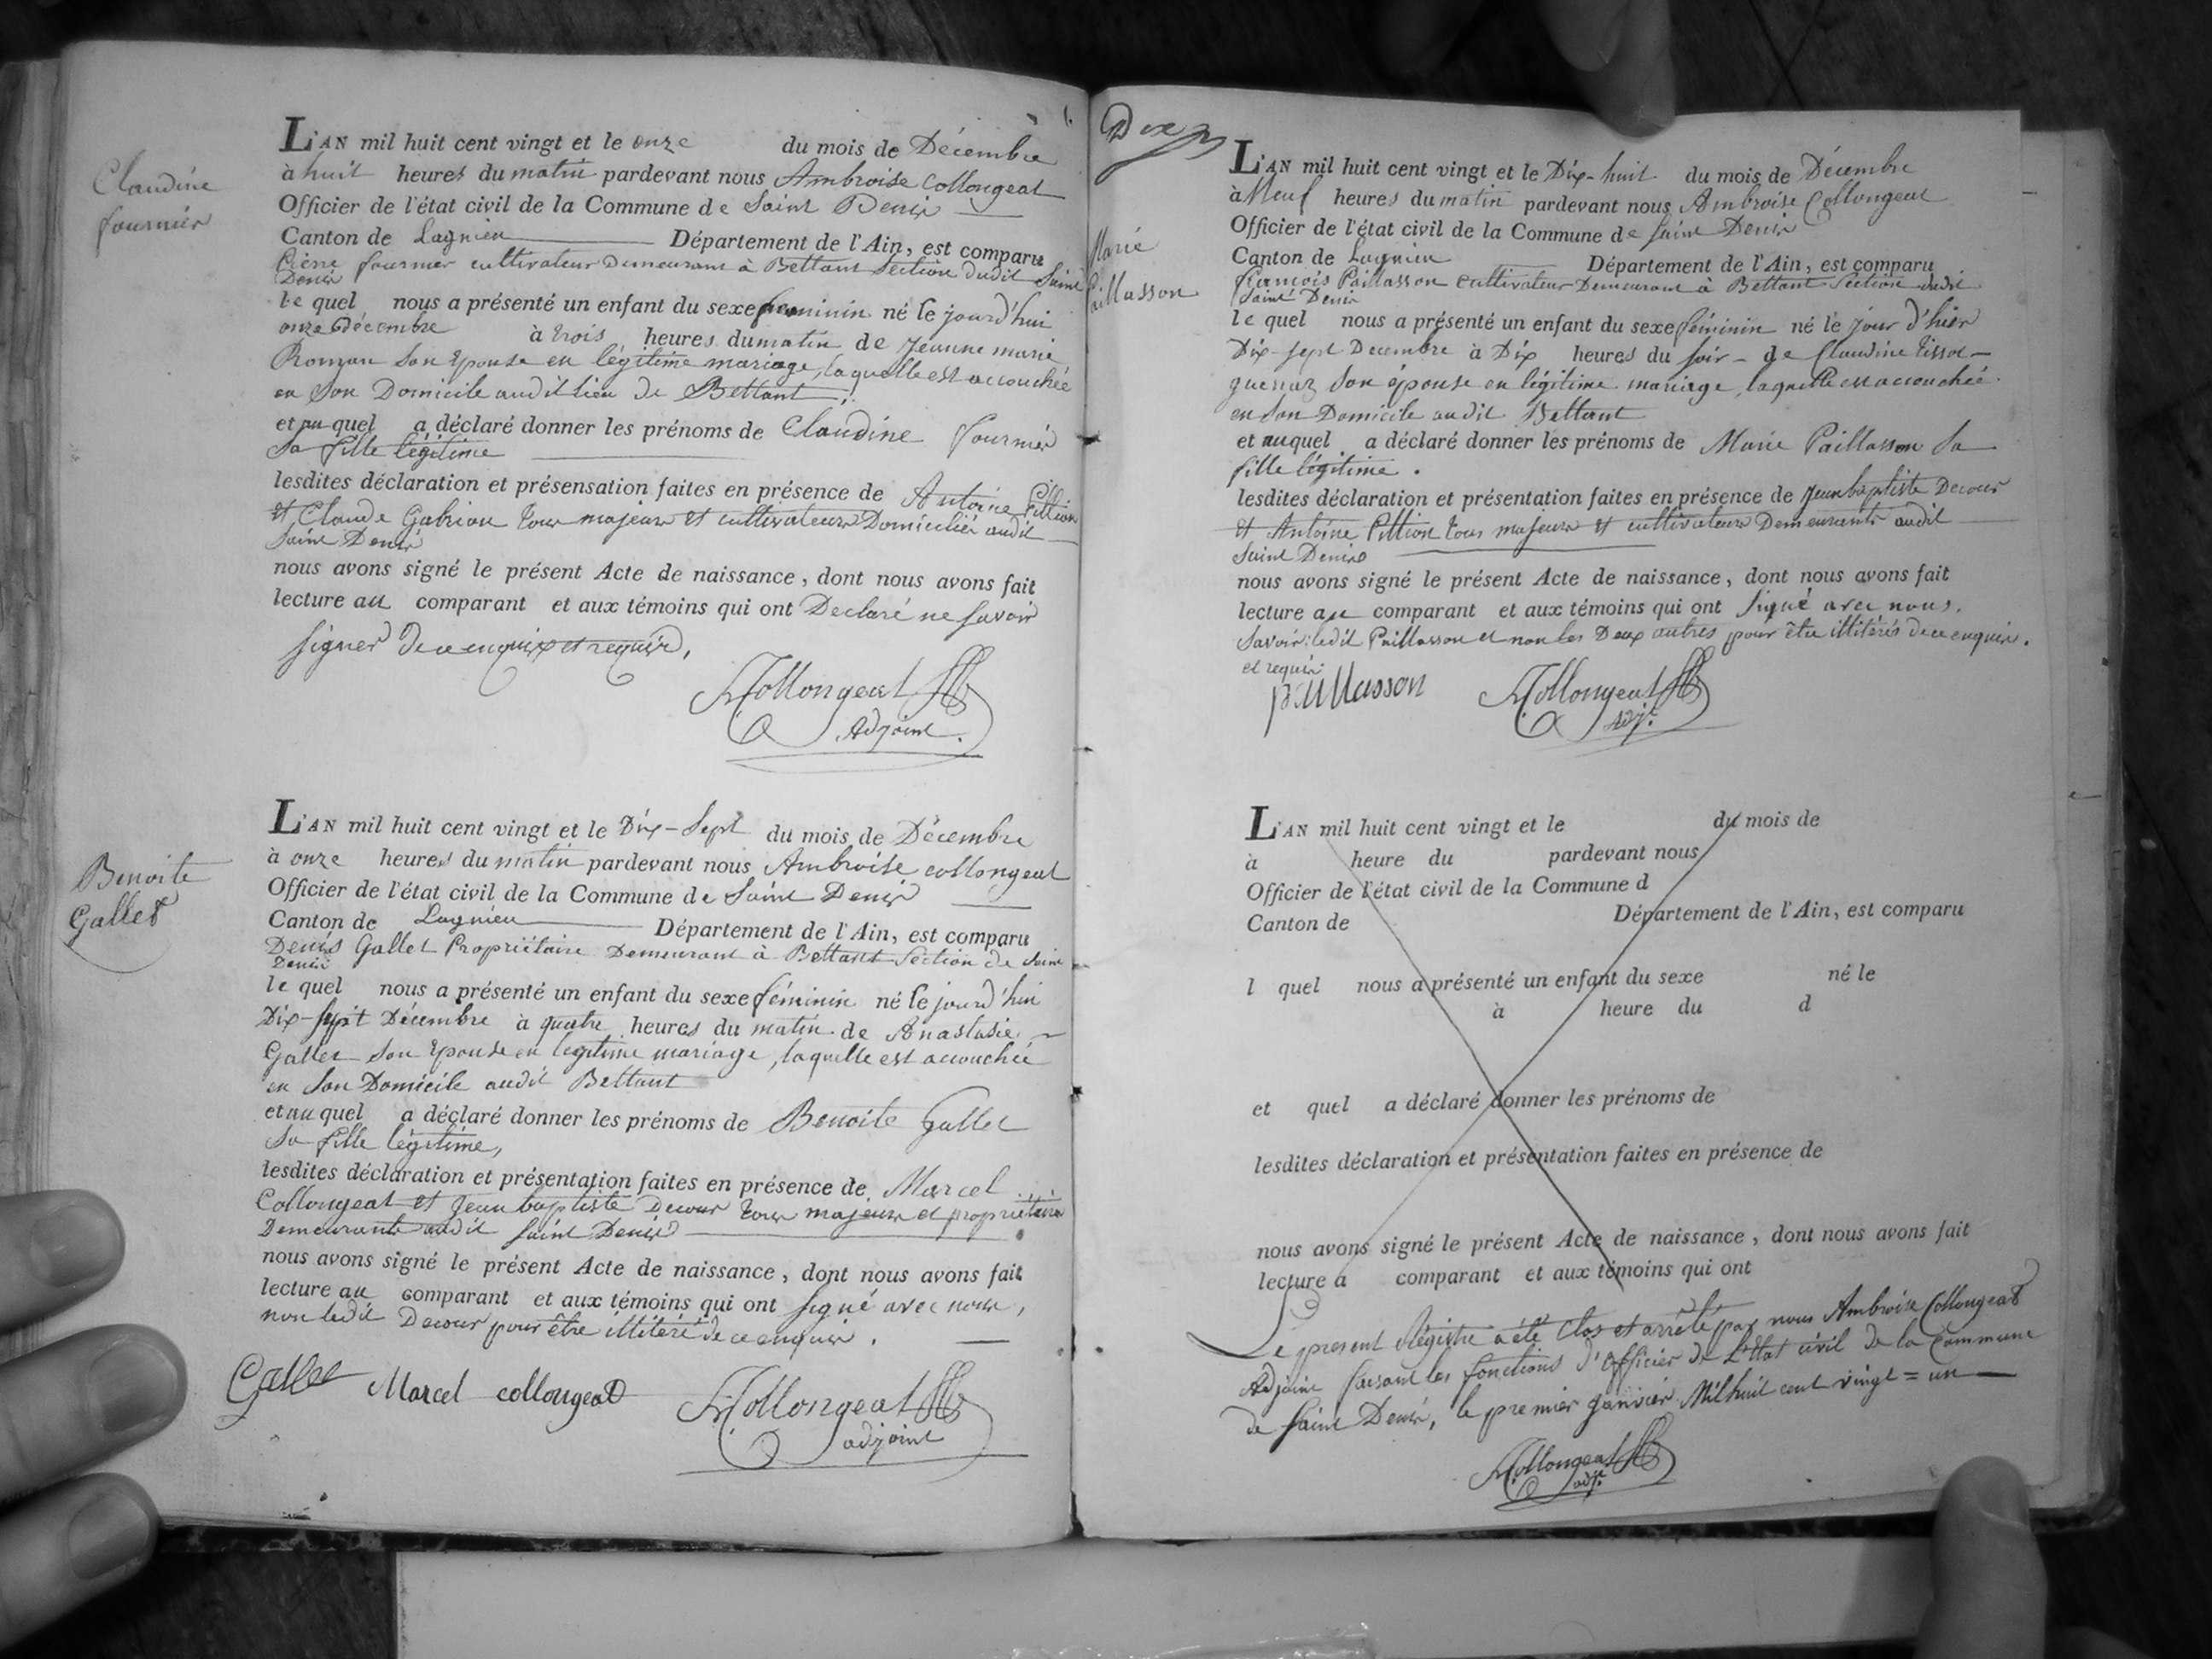 Claudine
fournier
L'AN mil huit cent vingt et le onze du mois de Décembre
à huit heures du matin pardevant nous Ambroise Collongeat
Officier de l'état civil de la Commune de Saint Denis
Canton de Lagnieu Département de l'Ain, est comparu
fournier cultivateur Demeurant à Bettant Section dudit Saint
Denis
le quel nous a présenté un enfant du sexe feminin né le jourd'hui
onze décembre à trois heures du matin de Jeanne marie
Roman son Epouse en légitime mariage, laquelle est accouchée
en Son Domicile audit lieu de Bettant
et au quel a déclaré donner les prénoms de Claudine fournier
Sa fille légitime
lesdites déclaration et présensation faites en présence de Antoine Pittion
et Claude Gabrion tous majeurs et cultivateurs Domiciliés audit
Saint Denis
nous avons signé le présent Acte de naissance, dont nous avons fait
lecture au comparant et aux témoins qui ont Declaré ne savoir
signer de ce enquis et requis,
Collongeat
Adjoint.
Benoite
Gallet
L'AN mil huit cent vingt et le Dix-Sept du mois de Décembre
à onze heures du matin pardevant nous Ambroise collongeat
Officier de l'état civil de la Commune de Saint Denis
Canton de Lagnieu Département de l'Ain, est comparu
Denis Gallet Propriétaire Demeurant à Bettant Section de Saint
Denis
le quel nous a présenté un enfant du sexe féminin né le jourd'hui
Dix-sept Décembre à quatre heures du matin de Anastasie
Gallet son Epouse en legitime mariage, laquelle est accouchée
en Son Domicile audit Bettant
et au quel a déclaré donner les prénoms de Benoite Gallet
Sa fille légitime,
lesdites déclaration et présentation faites en présence de Marcel
Collongeat et Jean baptiste Decour tous majeurs et propriétaires
Demeurants audit Saint Denis
nous avons signé le présent Acte de naissance, dont nous avons fait
lecture au comparant et aux témoins qui ont signé avec nous,
non ledit Decour pour être illitéré de ce enquis.
Gallet Marcel collongeat Collongeat
adjoint
Marie
Paillasson
L'AN mil huit cent vingt et le Dix-huit du mois de Décembre
à Neuf heures du matin pardevant nous Ambroise Collongeat
Officier de l'état civil de la Commune de Saint Denis
Canton de Lagnieu Département de l'Ain, est comparu
François Paillasson cultivateur Demeurant à Bettant Section dudit
Saint Denis
le quel nous a présenté un enfant du sexe féminin né le jour d'hier
Dix-sept Decembre à Dix heures du soir de Claudine Tissot
guenaz Son épouse en légitime mariage, laquelle est accouchée
en Son Domicile audit Bettant
et auquel a déclaré donner les prénoms de Marie Paillasson Sa
fille légitime.
lesdites déclaration et présentation faites en présence de Jean baptiste Decour
et Antoine Pittion tous majeurs et cultivateurs Demeurants audit
Saint Denis
nous avons signé le présent Acte de naissance, dont nous avons fait
lecture au comparant et aux témoins qui ont signé avec nous,
Savoir: ledit Paillasson et non les Deux autres pour être illitérés de ce enquis.
et requis
paillasson Collongeat
Adjt.
L'AN mil huit cent vingt et le du mois de
à heure du pardevant nous
Officier de l'état civil de la Commune d
Canton de Département de l'Ain, est comparu
l quel nous a présenté un enfant du sexe né le
à heure du d
et quel a déclaré donner les prénoms de
lesdites déclaration et présentation faites en présence de
nous avons signé le présent Acte de naissance, dont nous avons fait
lecture a comparant et aux témoins qui ont
Le present Régistre a été Clos et arrêté par nous Ambroise Collongeat
Adjoint faisant les fonctions d'officier de L'état civil de la Commune
de Saint Denis, le premier janvier Mil huit cent vingt = un
Collongeat
adjt.